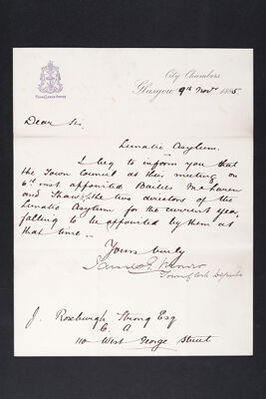 City Chambers
Glasgow 9th Novr 1885
Dear Sir,
Lunatic Asylum.
I beg to inform you that
the Town Council at their meeting on
6th inst appointed Bailies McLaren
and Shaw, the two directors of the
Lunatic Asylum for the current year,
falling to be appointed by them at
that time.
Yours truly
Town Clerk Depute
J. Roxburgh Strang Esq
C. A
110 West George Street